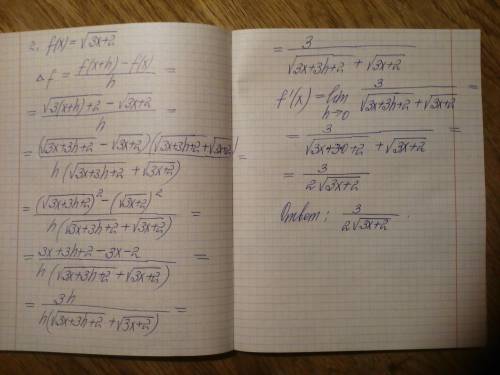 2. f(x) = √(3x+2)
Δf = (f(x+h) − f(x))/h =
= (√(3(x+h)+2) − √(3x+2))/h =
= (√(3x+3h+2) − √(3x+2))(√(3x+3h+2) + √(3x+2))/(h(√(3x+3h+2) + √(3x+2))) =
= ((√(3x+3h+2))² − (√(3x+2))²)/(h(√(3x+3h+2) + √(3x+2))) =
= (3x+3h+2−3x−2)/(h(√(3x+3h+2) + √(3x+2))) =
= 3h/(h(√(3x+3h+2) + √(3x+2))) =
= 3/(√(3x+3h+2) + √(3x+2))
f'(x) = lim h→0 3/(√(3x+3h+2) + √(3x+2)) =
= 3/(√(3x+3·0+2) + √(3x+2)) =
= 3/(2√(3x+2))
Ответ: 3/(2√(3x+2)).